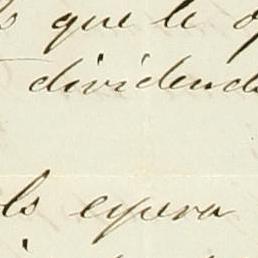 que le
dividend
ls espera